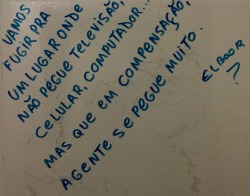 VAMOS
FUGIR PRA
UM LUGAR ONDE
NÃO PEGUE TELEVISÃO,
CELULAR, COMPUTADOR...
MAS QUE EM COMPENSAÇÃO,
AGENTE SE PEGUE MUITO.
ELBOOR
?